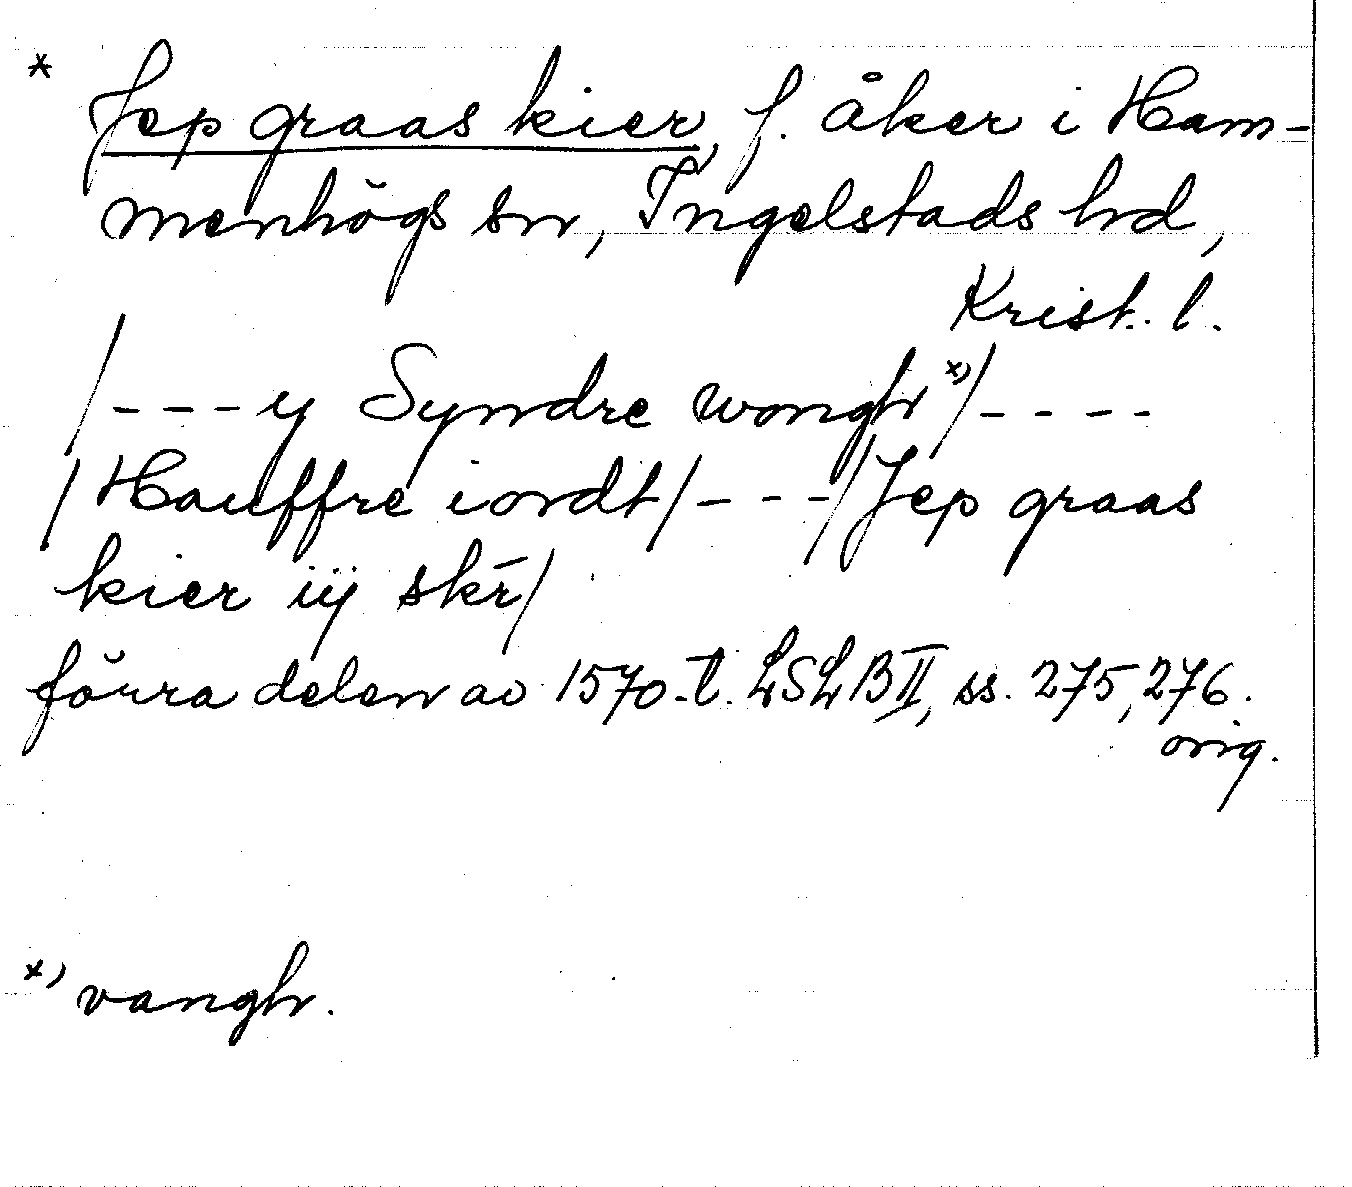 * Jep graas kier, f. åker i Ham-
menhögs sn, Ingelstads hd,
Krist. l.
/---y Syndre wongh x)/----
/Hauffre iordt/---/Jep graas
kier iij skr̄/
förra delen av 1570-t. LSLB II, ss. 275, 276.
orig.
x) vangh.